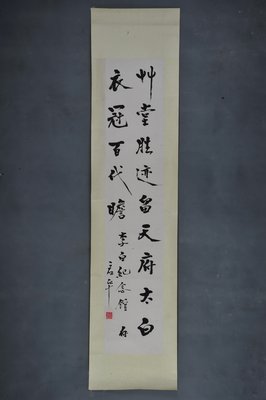 艸堂胜迹留天府太白
衣冠百代瞻
李白纪念馆存